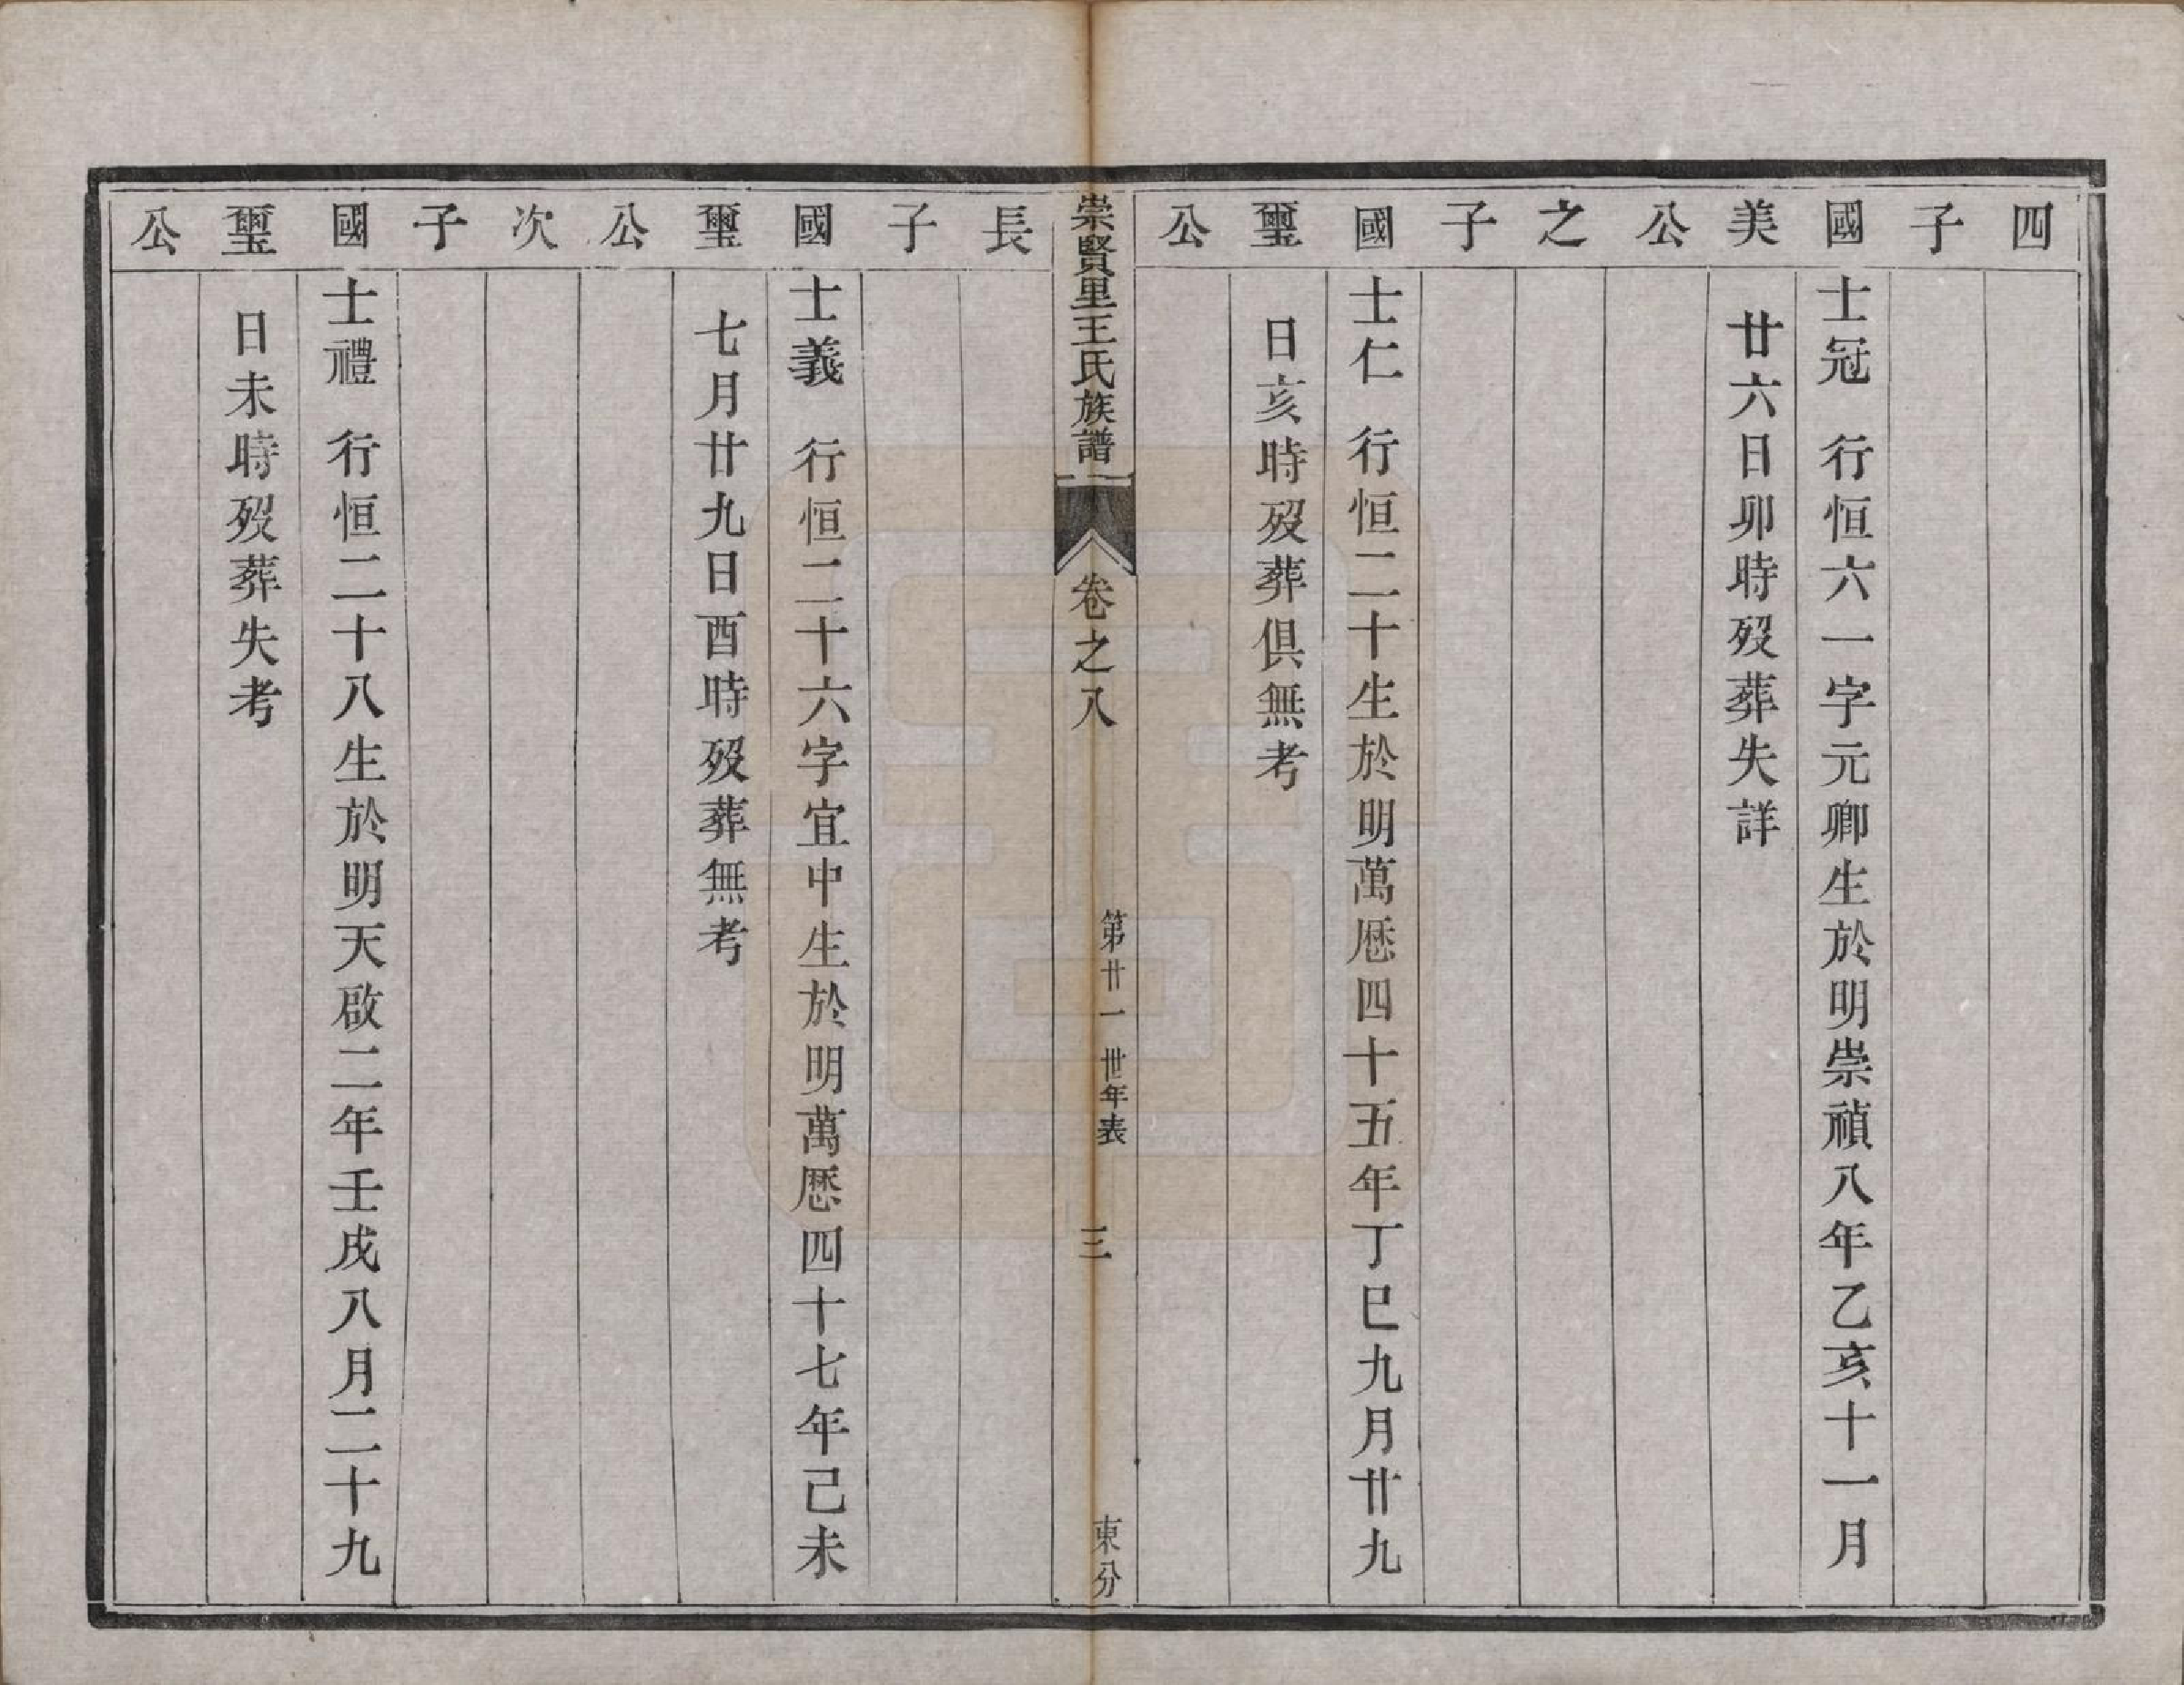 四子
士冠 行恒六一字元卿生於明崇禎八年乙亥十一月
廿六日卯時殁葬失詳
國美公之子
士仁 行恒二十生於明萬厯四十五年丁巳九月廿九
日亥時殁葬俱無考
國璽公
崇賢里王氏族譜 卷之八 第廿一世年表 三 東分
長子
士義 行恒二十六字宜中生於明萬厯四十七年己未
七月廿九日酉時殁葬無考
國璽公次子
士禮 行恒二十八生於明天啟二年壬戌八月二十九
日未時殁葬失考
國璽公